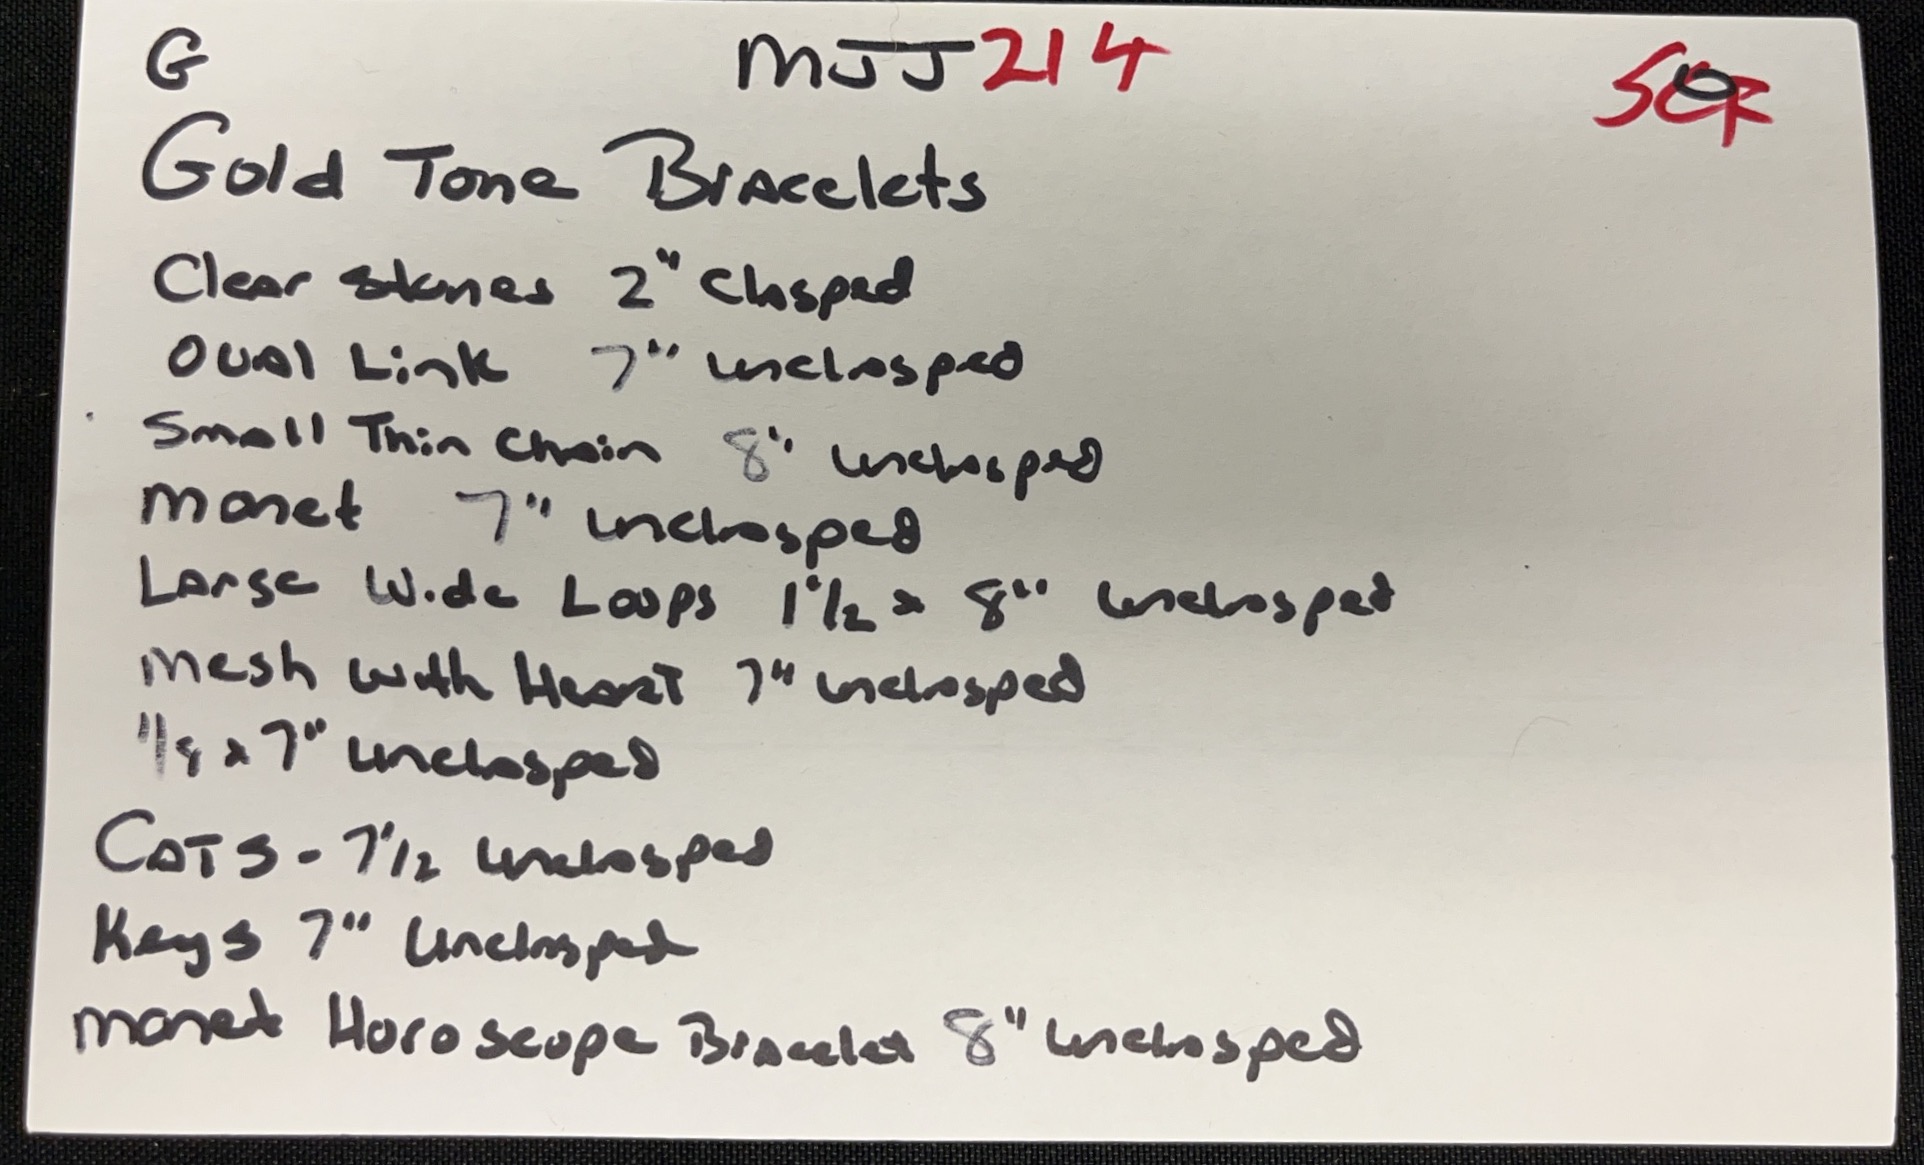 G MJJ214
Gold Tone Bracelets
Clear stones 2" Clasped
Oval Link 7" unclasped
Small Thin Chain 8" unclasped
Monet 7" unclasped
Large Wide Loops 1 1/2 x 8" unclasped
Mesh with Heart 7" unclasped
1/8 x 7" unclasped
CATS - 7 1/2 unclasped
Keys 7" Unclasped
Monet Horoscope Bracelet 8" unclasped